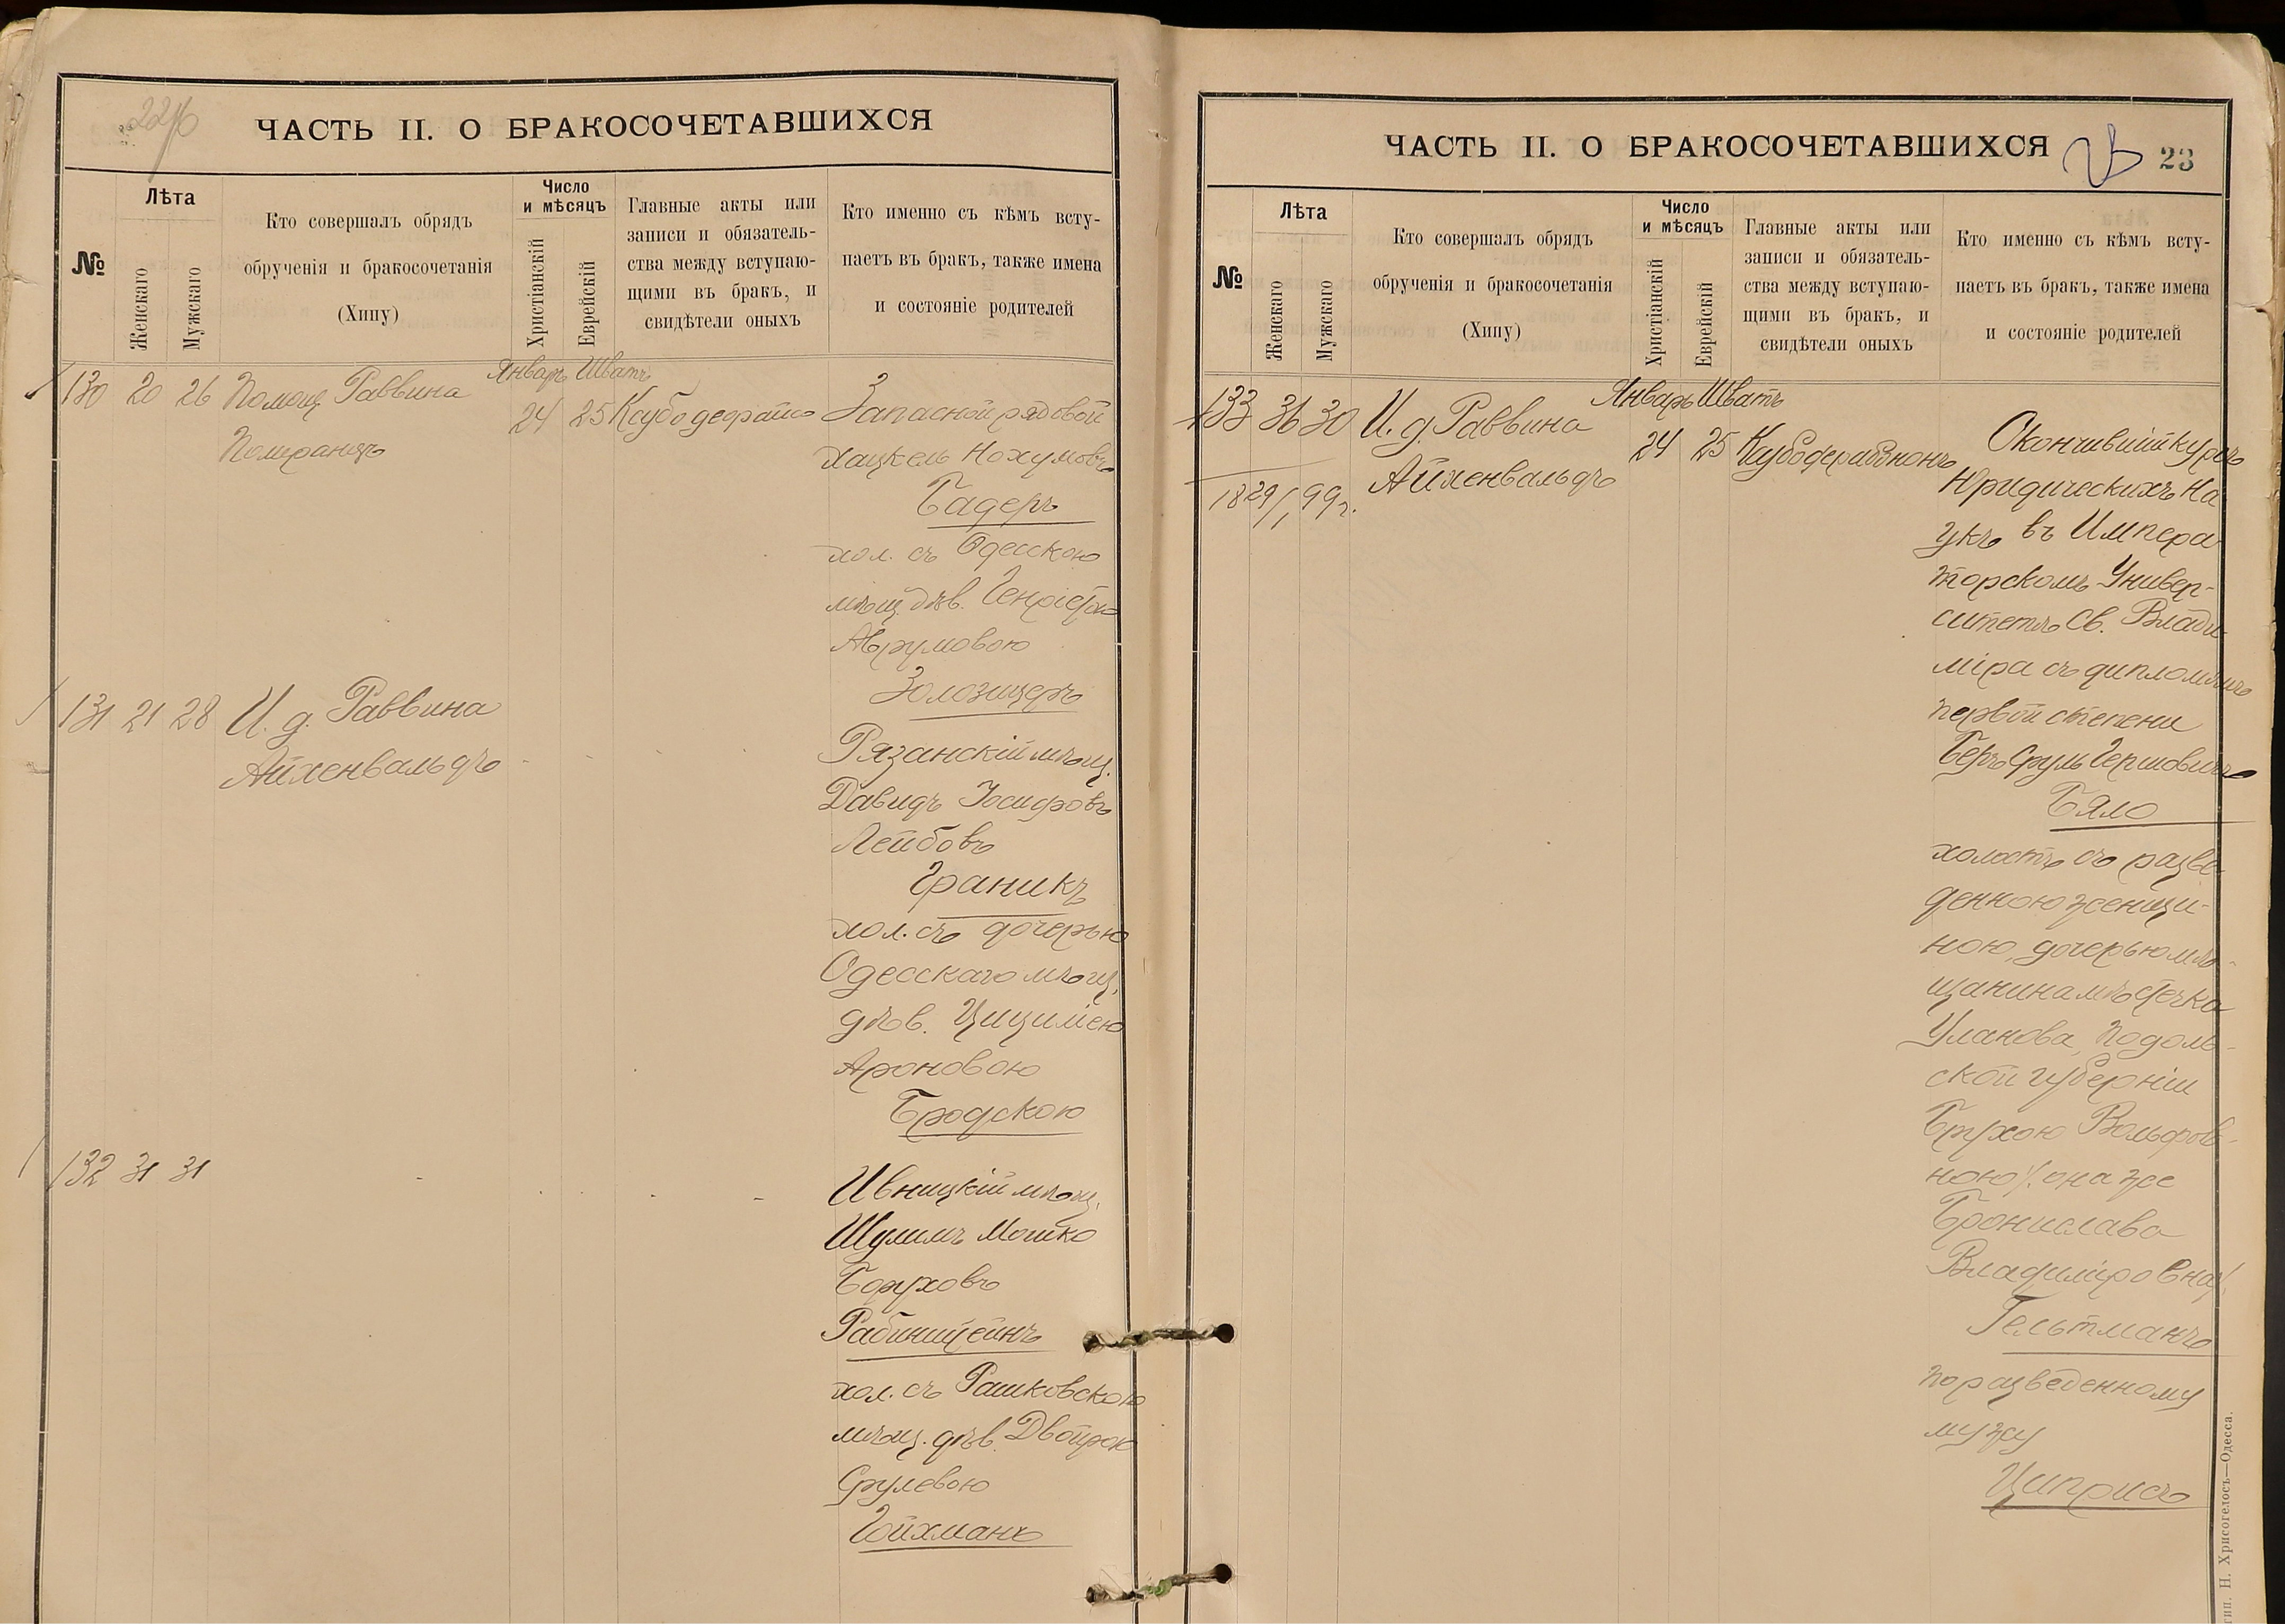 22об
ЧАСТЬ II. О БРАКОСОЧЕТАВШИХСЯ
№
Лѣта
Женскаго
Мужскаго
Кто совершалъ обрядъ
обрученія и бракосочетанія
(Хипу)
Число
и мѣсяцъ
Христіанскій
Еврейскій
Главные акты или
записи и обязатель-
ства между вступаю-
щими въ бракъ, и
свидѣтели оныхъ
Кто именно съ кѣмъ всту-
паетъ въ бракъ, также имена
и состояніе родителей
130 20 26 Помощ Раввина
Померанцъ
Январь Шватъ
24 25
Запасной рядовой
Хацкель Нохумовъ
Бадеръ
хол. съ Одесскою
мѣщ. дѣв. Генріетою
Аврумовою
Золозицеръ
131 21 28 И. д. Раввина
Айхенвальдъ
Рязанскій мѣщ.
Давидъ Іосифовъ
Лейбовъ
Граникъ
хол. съ дочерью
Одесскаго мѣщ.
дѣв. Цициліею
Ароновою
Бродскою
132 31 31
Ивницкій мѣщ.
Шулимъ Мошко
Боруховъ
Рабинштейнъ
хол. съ Рашковскою
мѣщ. дѣв. Двойрою
Срулевою
Гойхманъ
ЧАСТЬ II. О БРАКОСОЧЕТАВШИХСЯ
23
№
Лѣта
Женскаго
Мужскаго
Кто совершалъ обрядъ
обрученія и бракосочетанія
(Хипу)
Число
и мѣсяцъ
Христіанскій
Еврейскій
Главные акты или
записи и обязатель-
ства между вступаю-
щими въ бракъ, и
свидѣтели оныхъ
Кто именно съ кѣмъ всту-
паетъ въ бракъ, также имена
и состояніе родителей
133 36 30 И. д. Раввина
Айхенвальдъ
18 29/1 99 г.
Январь Шватъ
24 25
Окончившій курсъ
Юридическихъ На
укъ въ Импера
торскомъ Универ-
ситетѣ Св. Влади-
міра съ дипломомъ
первой степени
Беръ Сруль Гершовичъ
Бяло
холостъ съ разве
денною женщи-
ною, дочерью мѣ-
щанина мѣстечка
Уланова, Подоль-
ской губерніи
Брухою Вольфов-
ною /. она же
Бронислава
Владиміровна/
Гельтманъ
по разведенному
мужу
Циприсъ
тип. Н. Хрисогелосъ—Одесса.